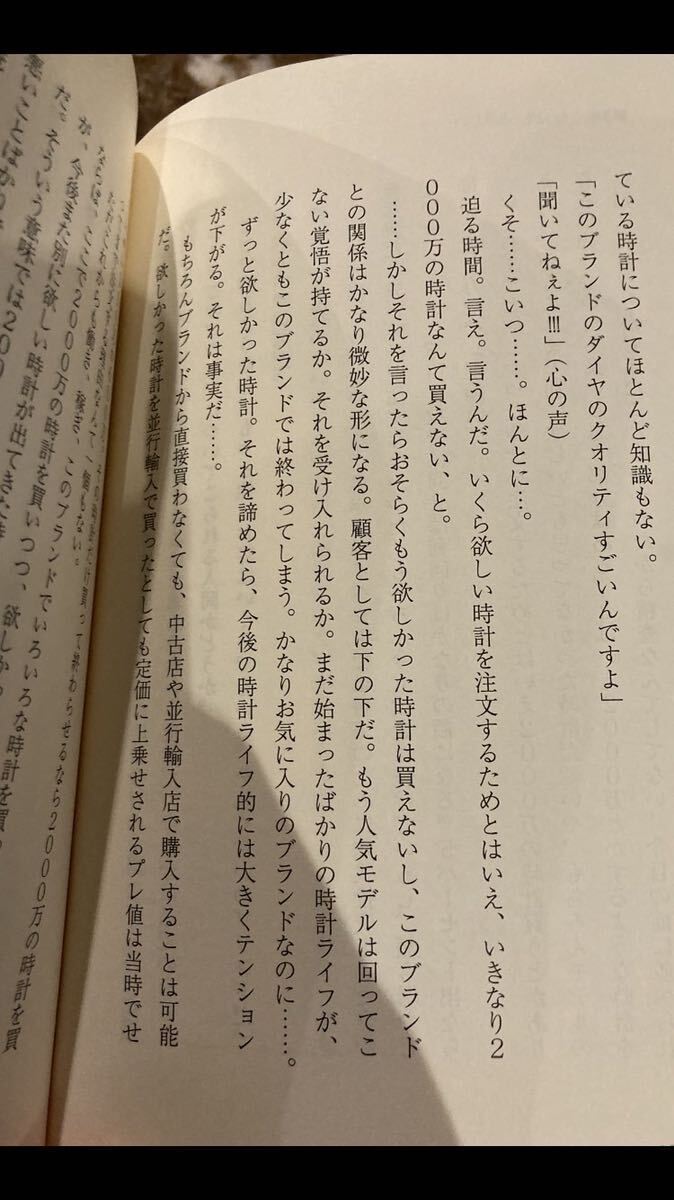 ている時計についてほとんど知識もない。
「このブランドのダイヤのクオリティすごいんですよ」
「聞いてねぇよ!!!」（心の声）
くそ……こいつ……。ほんとに…。
迫る時間。言え。言うんだ。いくら欲しい時計を注文するためとはいえ、いきなり2
000万の時計なんて買えない、と。
……しかしそれを言ったらおそらくもう欲しかった時計は買えないし、このブランド
との関係はかなり微妙な形になる。顧客としては下の下だ。もう人気モデルは回ってこ
ない覚悟が持てるか。それを受け入れられるか。まだ始まったばかりの時計ライフが、
少なくともこのブランドでは終わってしまう。かなりお気に入りのブランドなのに……。
ずっと欲しかった時計。それを諦めたら、今後の時計ライフ的には大きくテンション
が下がる。それは事実だ……。
もちろんブランドから直接買わなくても、中古店や並行輸入店で購入することは可能
だ。欲しかった時計を並行輸入で買ったとしても定価に上乗せされるプレ値は当時でせ
買って終わらせるなら2000万の時計を買
ここで2000万の時計を買いつつ、このブランドでいろいろな時計を買
が、今後また別に欲しい時計が出てきた
だ。そういう意味では200
悪いことばかり